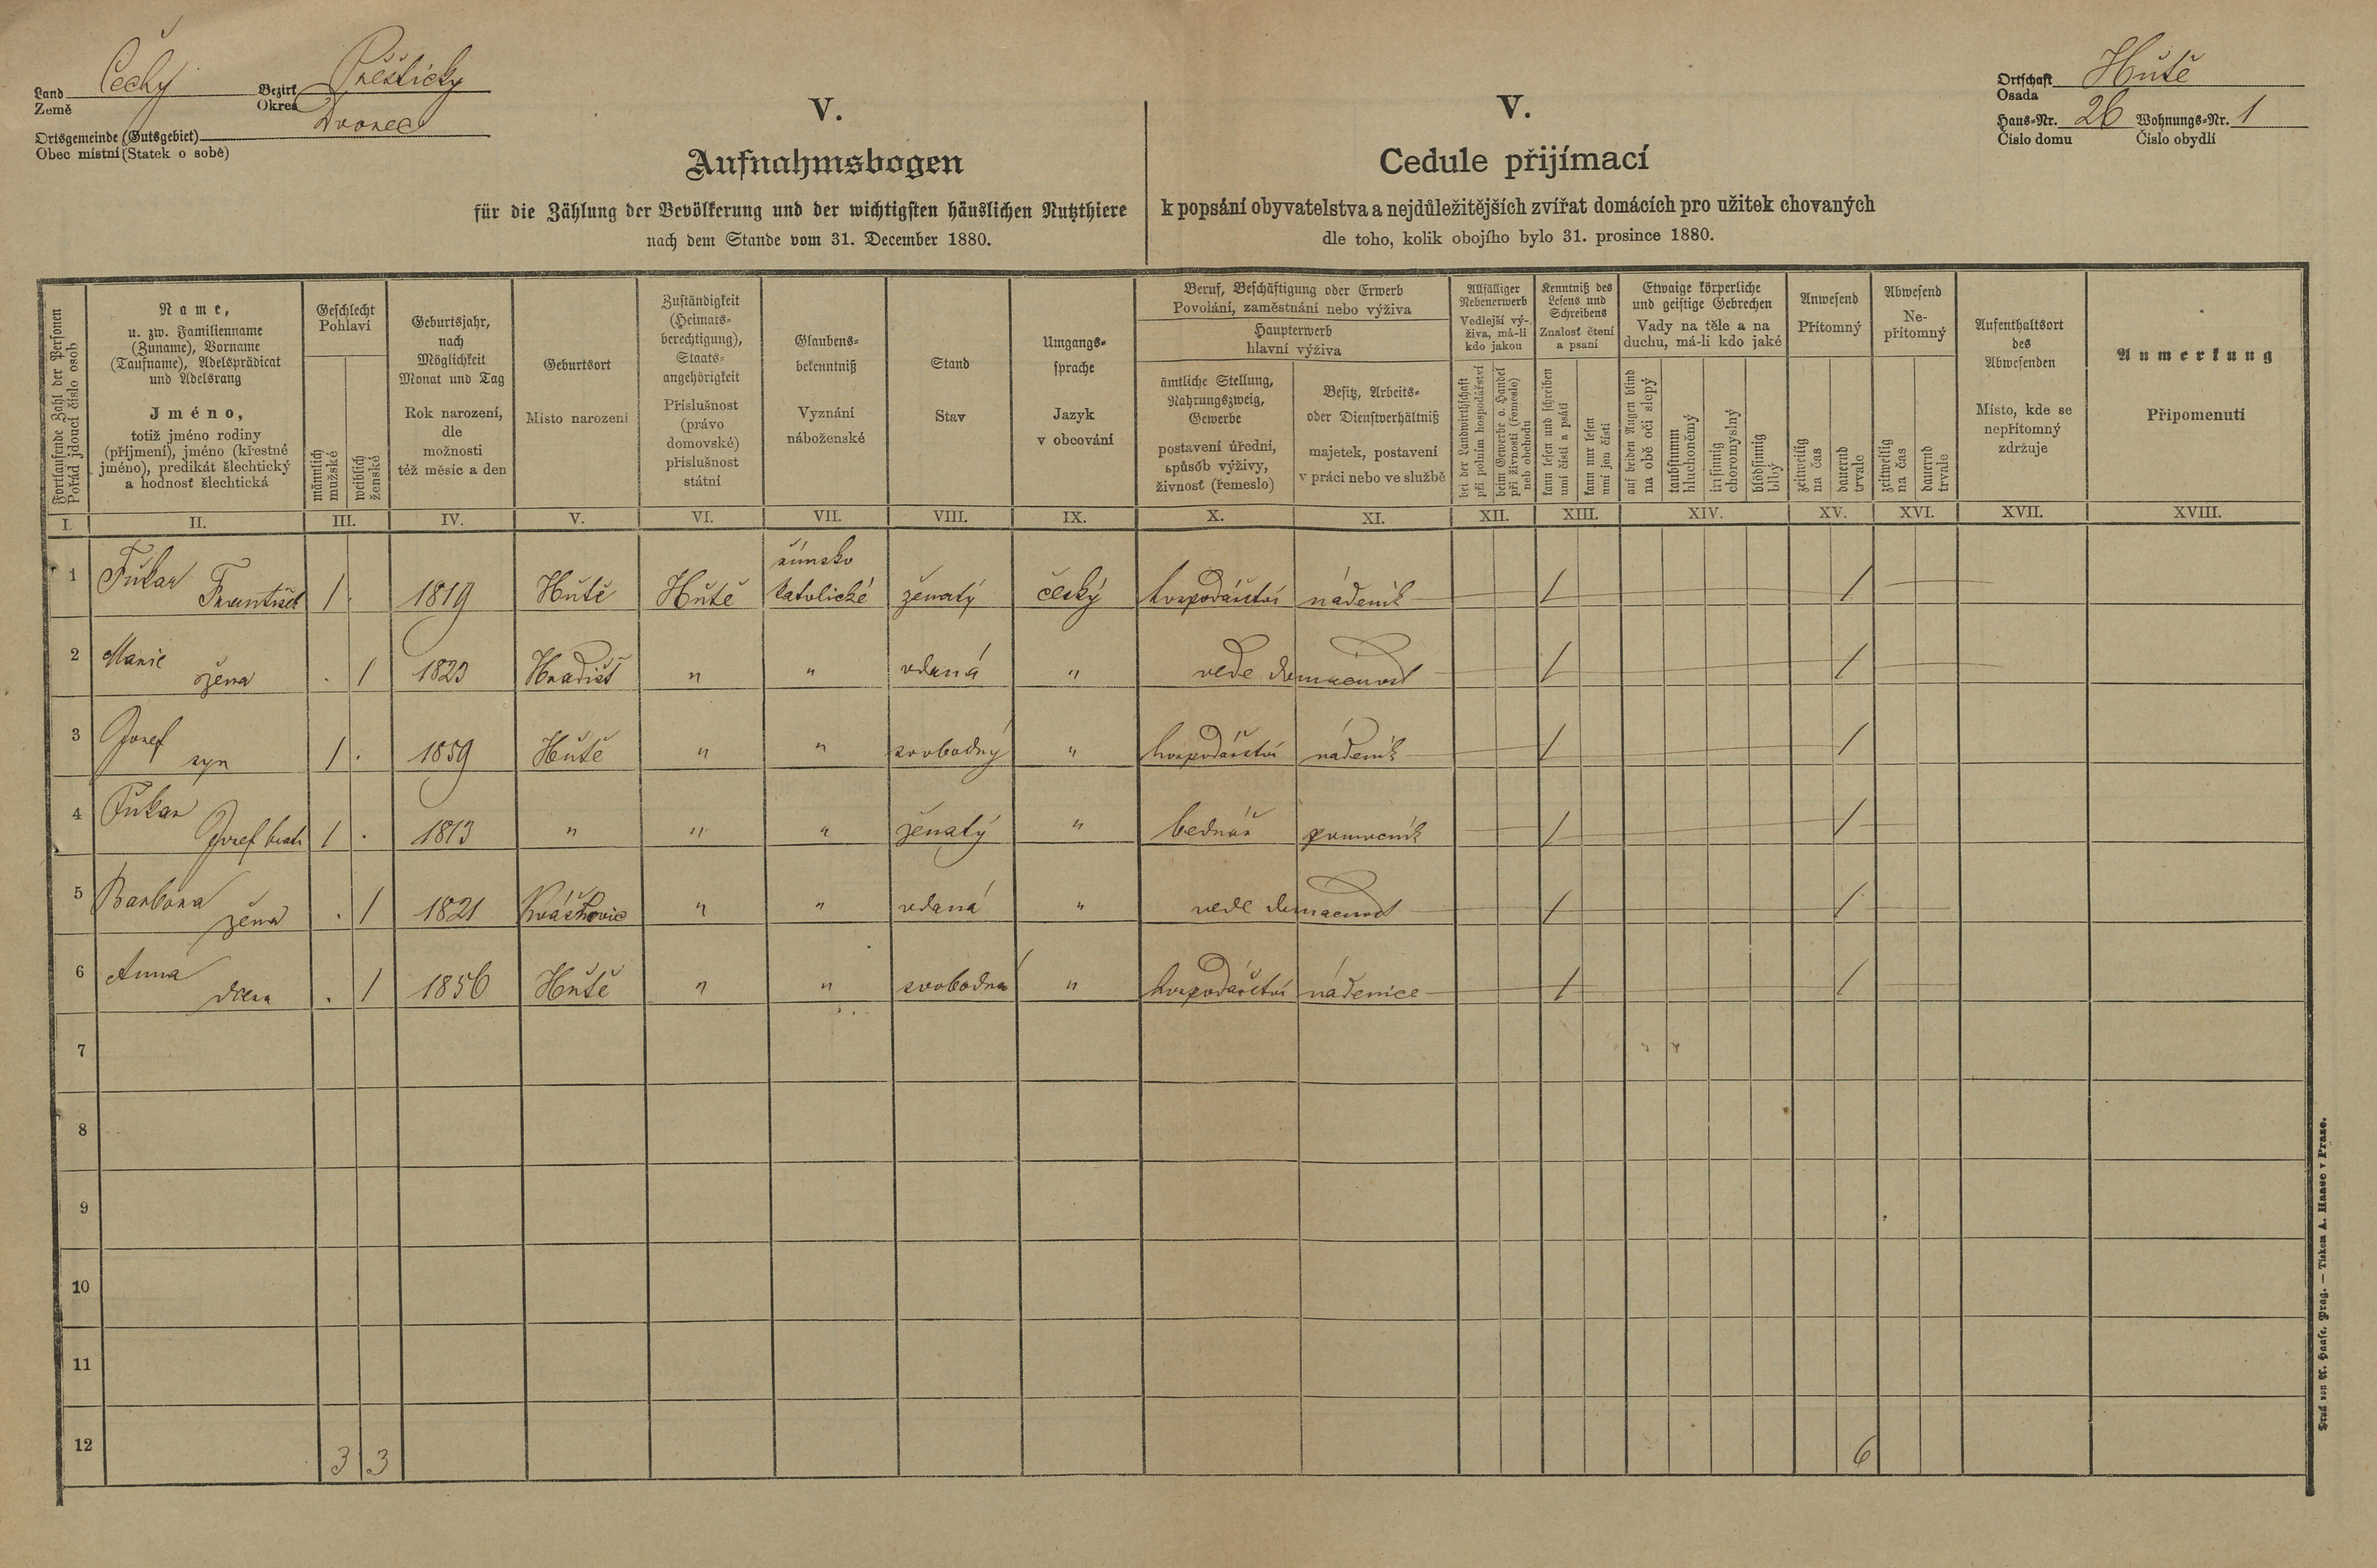 Land Čechy Bezirk Přestický
Země Okres
Ortsgemeinde (Gutsgebiet) Dvorec
Obec místní (Statek o sobě)
Ortschaft Hůtě
Osada
Haus-Nr. 26 Wohnungs-Nr. 1
Číslo domu Číslo obydlí
V.
Aufnahmsbogen
für die Zählung der Bevölkerung und der wichtigsten häuslichen Nutzthiere
nach dem Stande vom 31. December 1880.
V.
Cedule přijímací
k popsání obyvatelstva a nejdůležitějších zvířat domácích pro užitek chovaných
dle toho, kolik obojího bylo 31. prosince 1880.
Fortlaufende Zahl der Personen
Pořád jdoucí číslo osob
Name,
u. zw. Familienname
(Zuname), Vorname
(Taufname), Adelsprädicat
und Adelsrang
Jméno,
totiž jméno rodiny
(příjmení), jméno (křestné
jméno), predikát šlechtický
a hodnosť šlechtická
Geschlecht
Pohlaví
männlich
mužské
weiblich
ženské
Geburtsjahr,
nach
Möglichkeit
Monat und Tag
Rok narození,
dle
možnosti
též měsíc a den
Geburtsort
Místo narození
Zuständigkeit
(Heimats-
berechtigung),
Staats-
angehörigkeit
Příslušnost
(právo
domovské)
příslušnost
státní
Glaubens-
bekenntniß
Vyznání
náboženské
Stand
Stav
Umgangs-
sprache
Jazyk
v obcování
Beruf, Beschäftigung oder Erwerb
Povolání, zaměstnání nebo výživa
Haupterwerb
hlavní výživa
ämtliche Stellung,
Nahrungszweig,
Gewerbe
postavení úřední,
způsob výživy,
živnosť (řemeslo)
Besitz, Arbeits-
oder Dienstverhältniß
majetek, postavení
v práci nebo ve službě
Allfälliger
Nebenerwerb
Vedlejší vý-
živa, má-li
kdo jakou
bei der Landwirthschaft
při polním hospodářství
beim Gewerbe o. Handel
při živnosti (řemesle)
neb obchodu
Kenntniß des
Lesens und
Schreibens
Znalosť čtení
a psaní
kann lesen und schreiben
umí čísti a psáti
kann nur lesen
umí jen čísti
Etwaige körperliche
und geistige Gebrechen
Vady na těle a na
duchu, má-li kdo jaké
auf beiden Augen blind
na obě oči slepý
taubstumm
hluchoněmý
irrsinnig
choromyslný
blödsinnig
blbý
Anwesend
Přítomný
zeitweilig
na čas
dauernd
trvale
Abwesend
Ne-
přítomný
zeitweilig
na čas
dauernd
trvale
Aufenthaltsort
des
Abwesenden
Místo, kde se
nepřítomný
zdržuje
Anmerkung
Připomenutí
I. II. III. IV. V. VI. VII. VIII. IX. X. XI. XII. XIII. XIV. XV. XVI. XVII. XVIII.
římsko
1 Fůkar František 1 1819 Hůtě Hůtě katolické ženatý český hospodářství nádeník 1 1
2 Marie žena . 1 1823 Hradišt " " vdaná " vede domácnost 1 1
3 Josef syn 1 . 1859 Hůtě " " svobodný " hospodářství nádeník 1 1
4 Fůkar Josef bratr 1 . 1813 " " " ženatý " bednář pomocník 1 1
5 Barbora žena . 1 1821 Kváskovic " " vdaná " vede domácnost 1 1
6 Anna dcera . 1 1856 Hůtě " " svobodná " hospodářství nádenice 1 1
7
8
9
10
11
12 3 3 6
Druck von A. Haase, Prag. — Tiskem A. Haase v Praze.